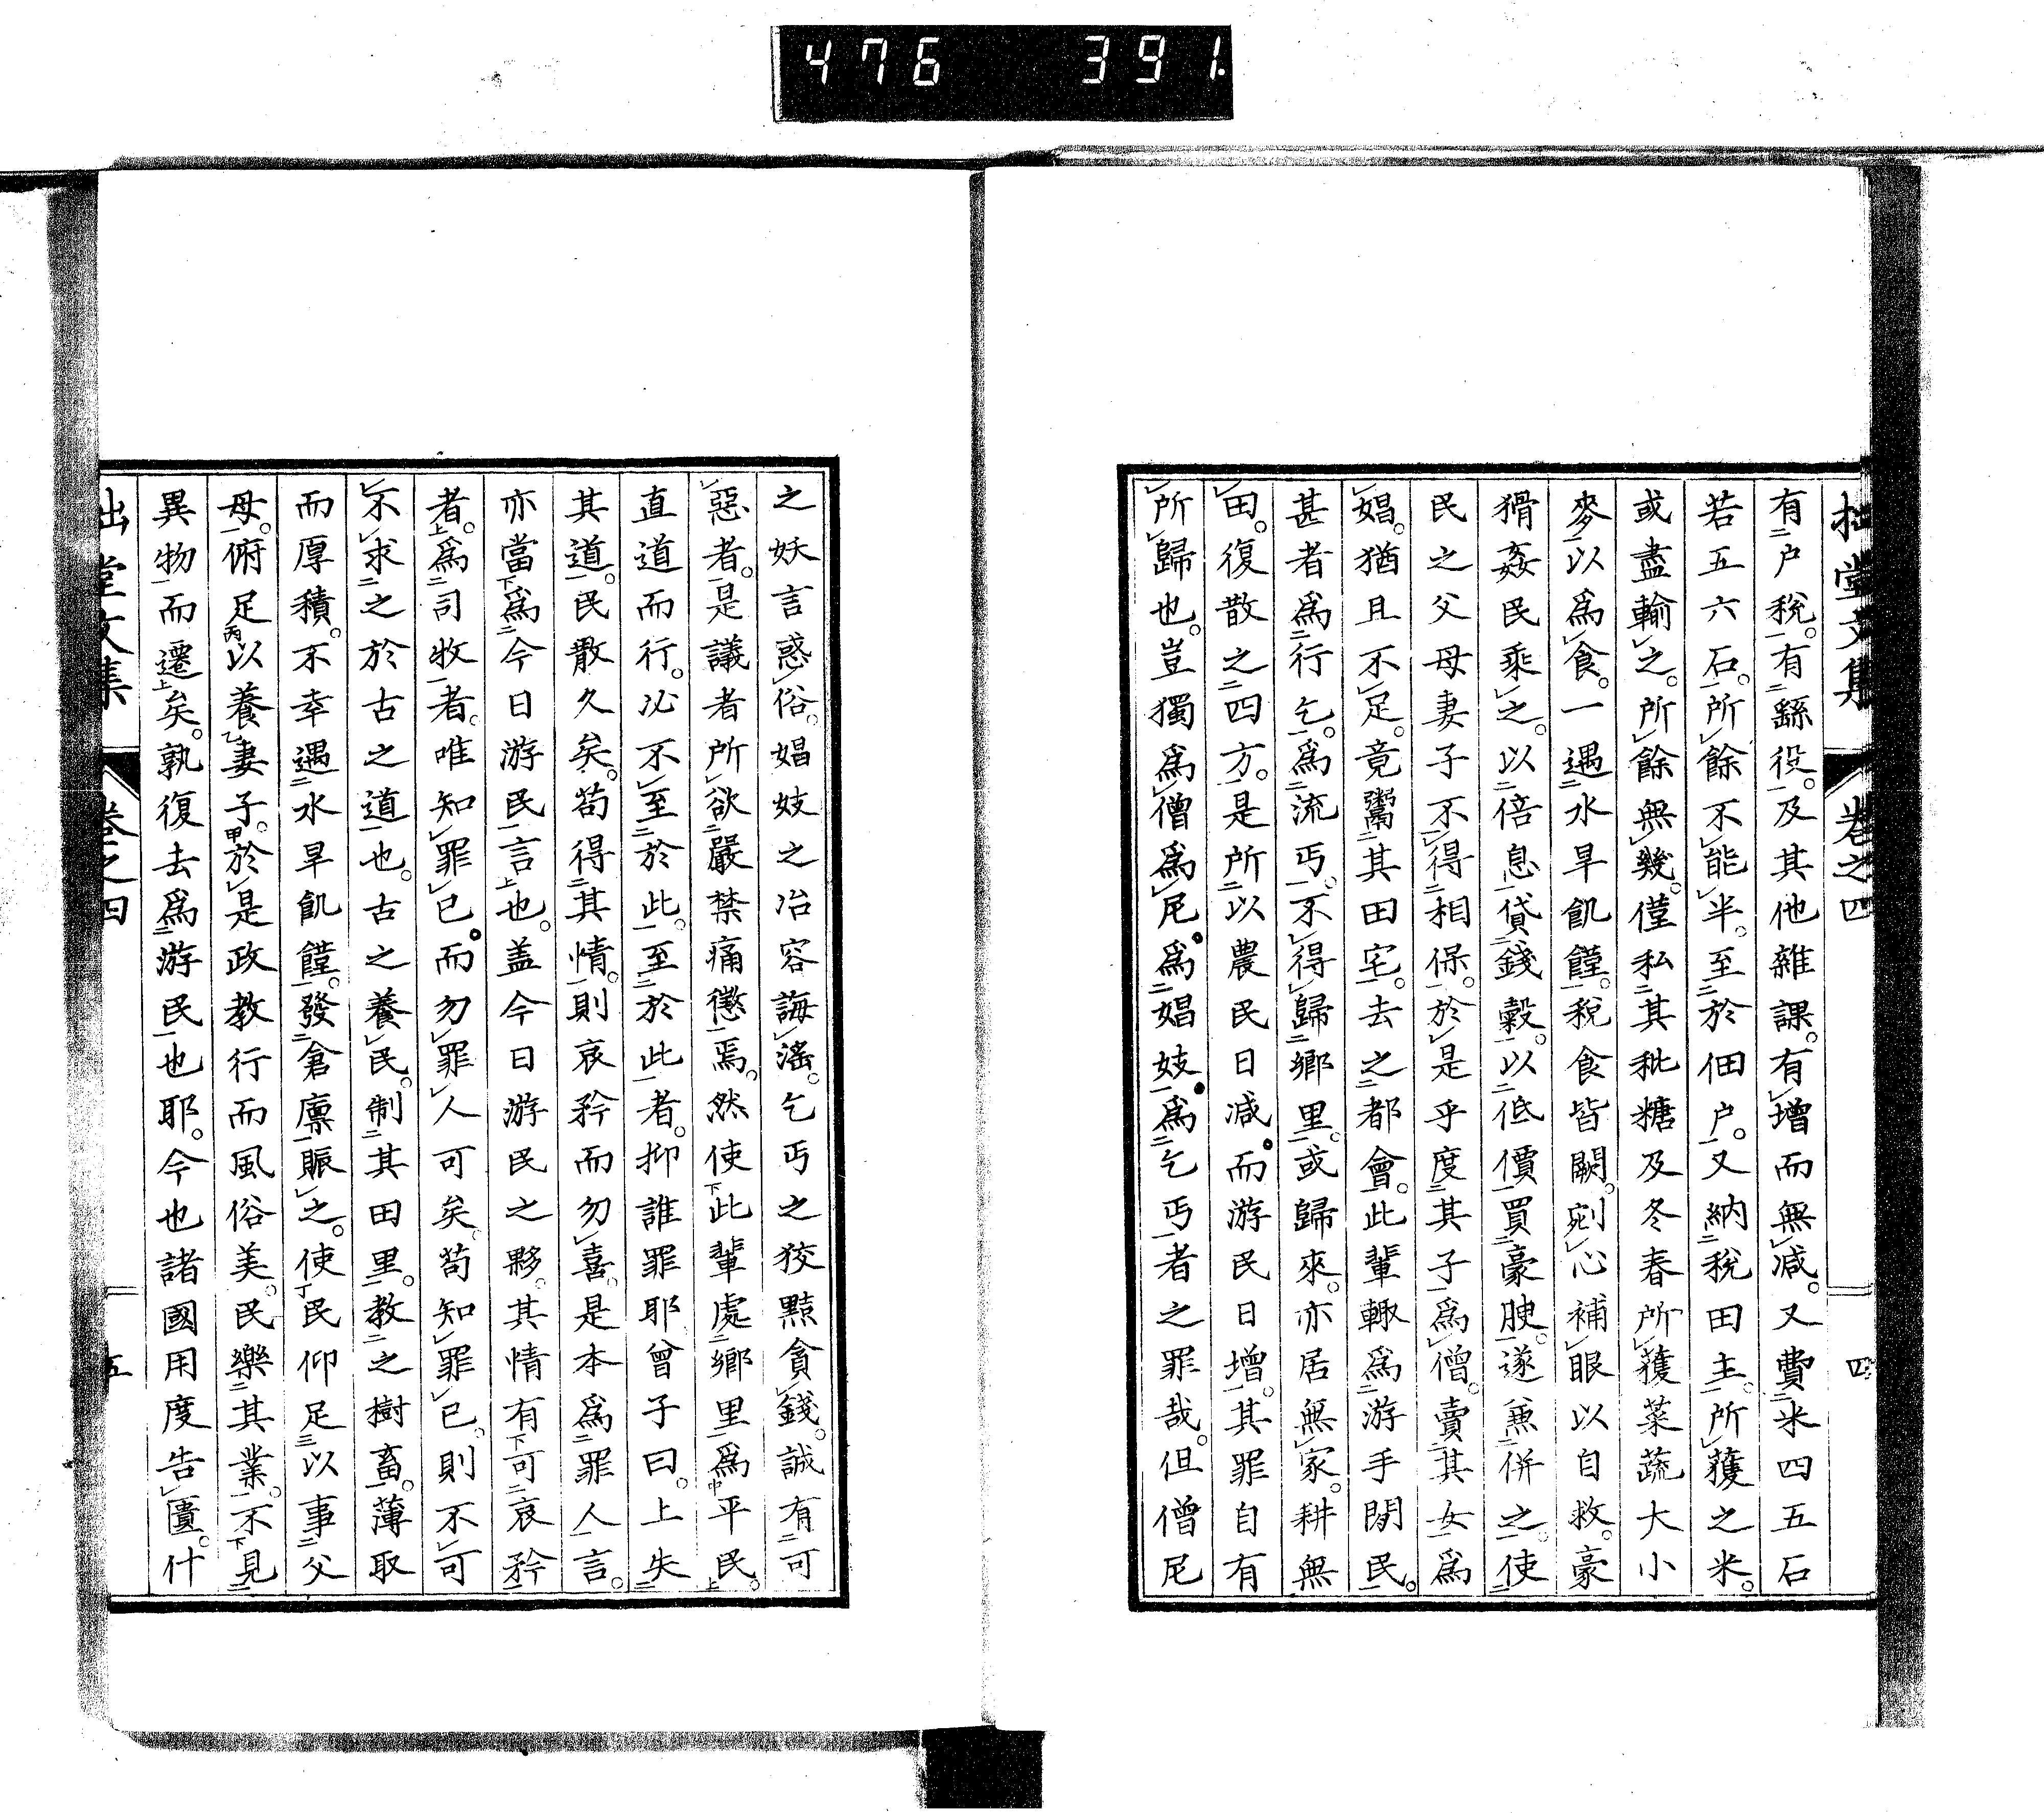 476 391
拙堂文集 卷之四 四
有戸稅。有繇役。及其他雜課。有增而無減。又費米四五石
若五六石。所餘不能半。至於佃戸。又納稅田主。所穫之米。
或盡輸之。所餘無幾。僅私其秕糖及冬春所穫菜蔬大小
麥以爲食。一遇水旱飢饉。稅食皆闕。剜心補眼以自救。豪
猾姦民乘之。以倍息貸錢穀。以低價買豪腴。遂兼併之。使
民之父母妻子不得相保。於是乎度其子爲僧。賣其女爲
娼。猶且不足。竟鬻其田宅。去之都會。此輩輙爲游手閒民。
甚者爲行乞。爲流丐。不得歸鄉里。或歸來。亦居無家。耕無
田。復散之四方。是所以農民日減。而游民日增。其罪自有
所歸也。豈獨爲僧爲尼。爲娼妓。爲乞丐者之罪哉。但僧尼
之妖言惑俗。娼妓之冶容誨滛。乞丐之狡黠貪錢。誠有可
惡者。是議者所欲嚴禁痛懲焉。然使此輩處鄉里爲平民。
直道而行。必不至於此。至於此者。抑誰罪耶。曾子曰。上失
其道。民散久矣。苟得其情。則哀矜而勿喜。是本爲罪人言。
亦當爲今日游民言也。盖今日游民之夥。其情有可哀矜
者。爲司牧者。唯知罪已。而勿罪人可矣。苟知罪已。則不可
不求之於古之道也。古之養民。制其田里。教之樹畜。薄取
而厚積。不幸遇水旱飢饉。發倉廩賑之。使民仰足以事父
母。俯足以養妻子。於是政教行而風俗美。民樂其業。不見
異物而遷矣。孰復去爲游民也耶。今也諸國用度告匱。什
拙堂文集 卷之四 五